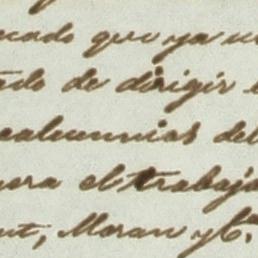 cado que ya
ado de dirigir
calumnias del
era el trabajo
nt, Moran y Cª.